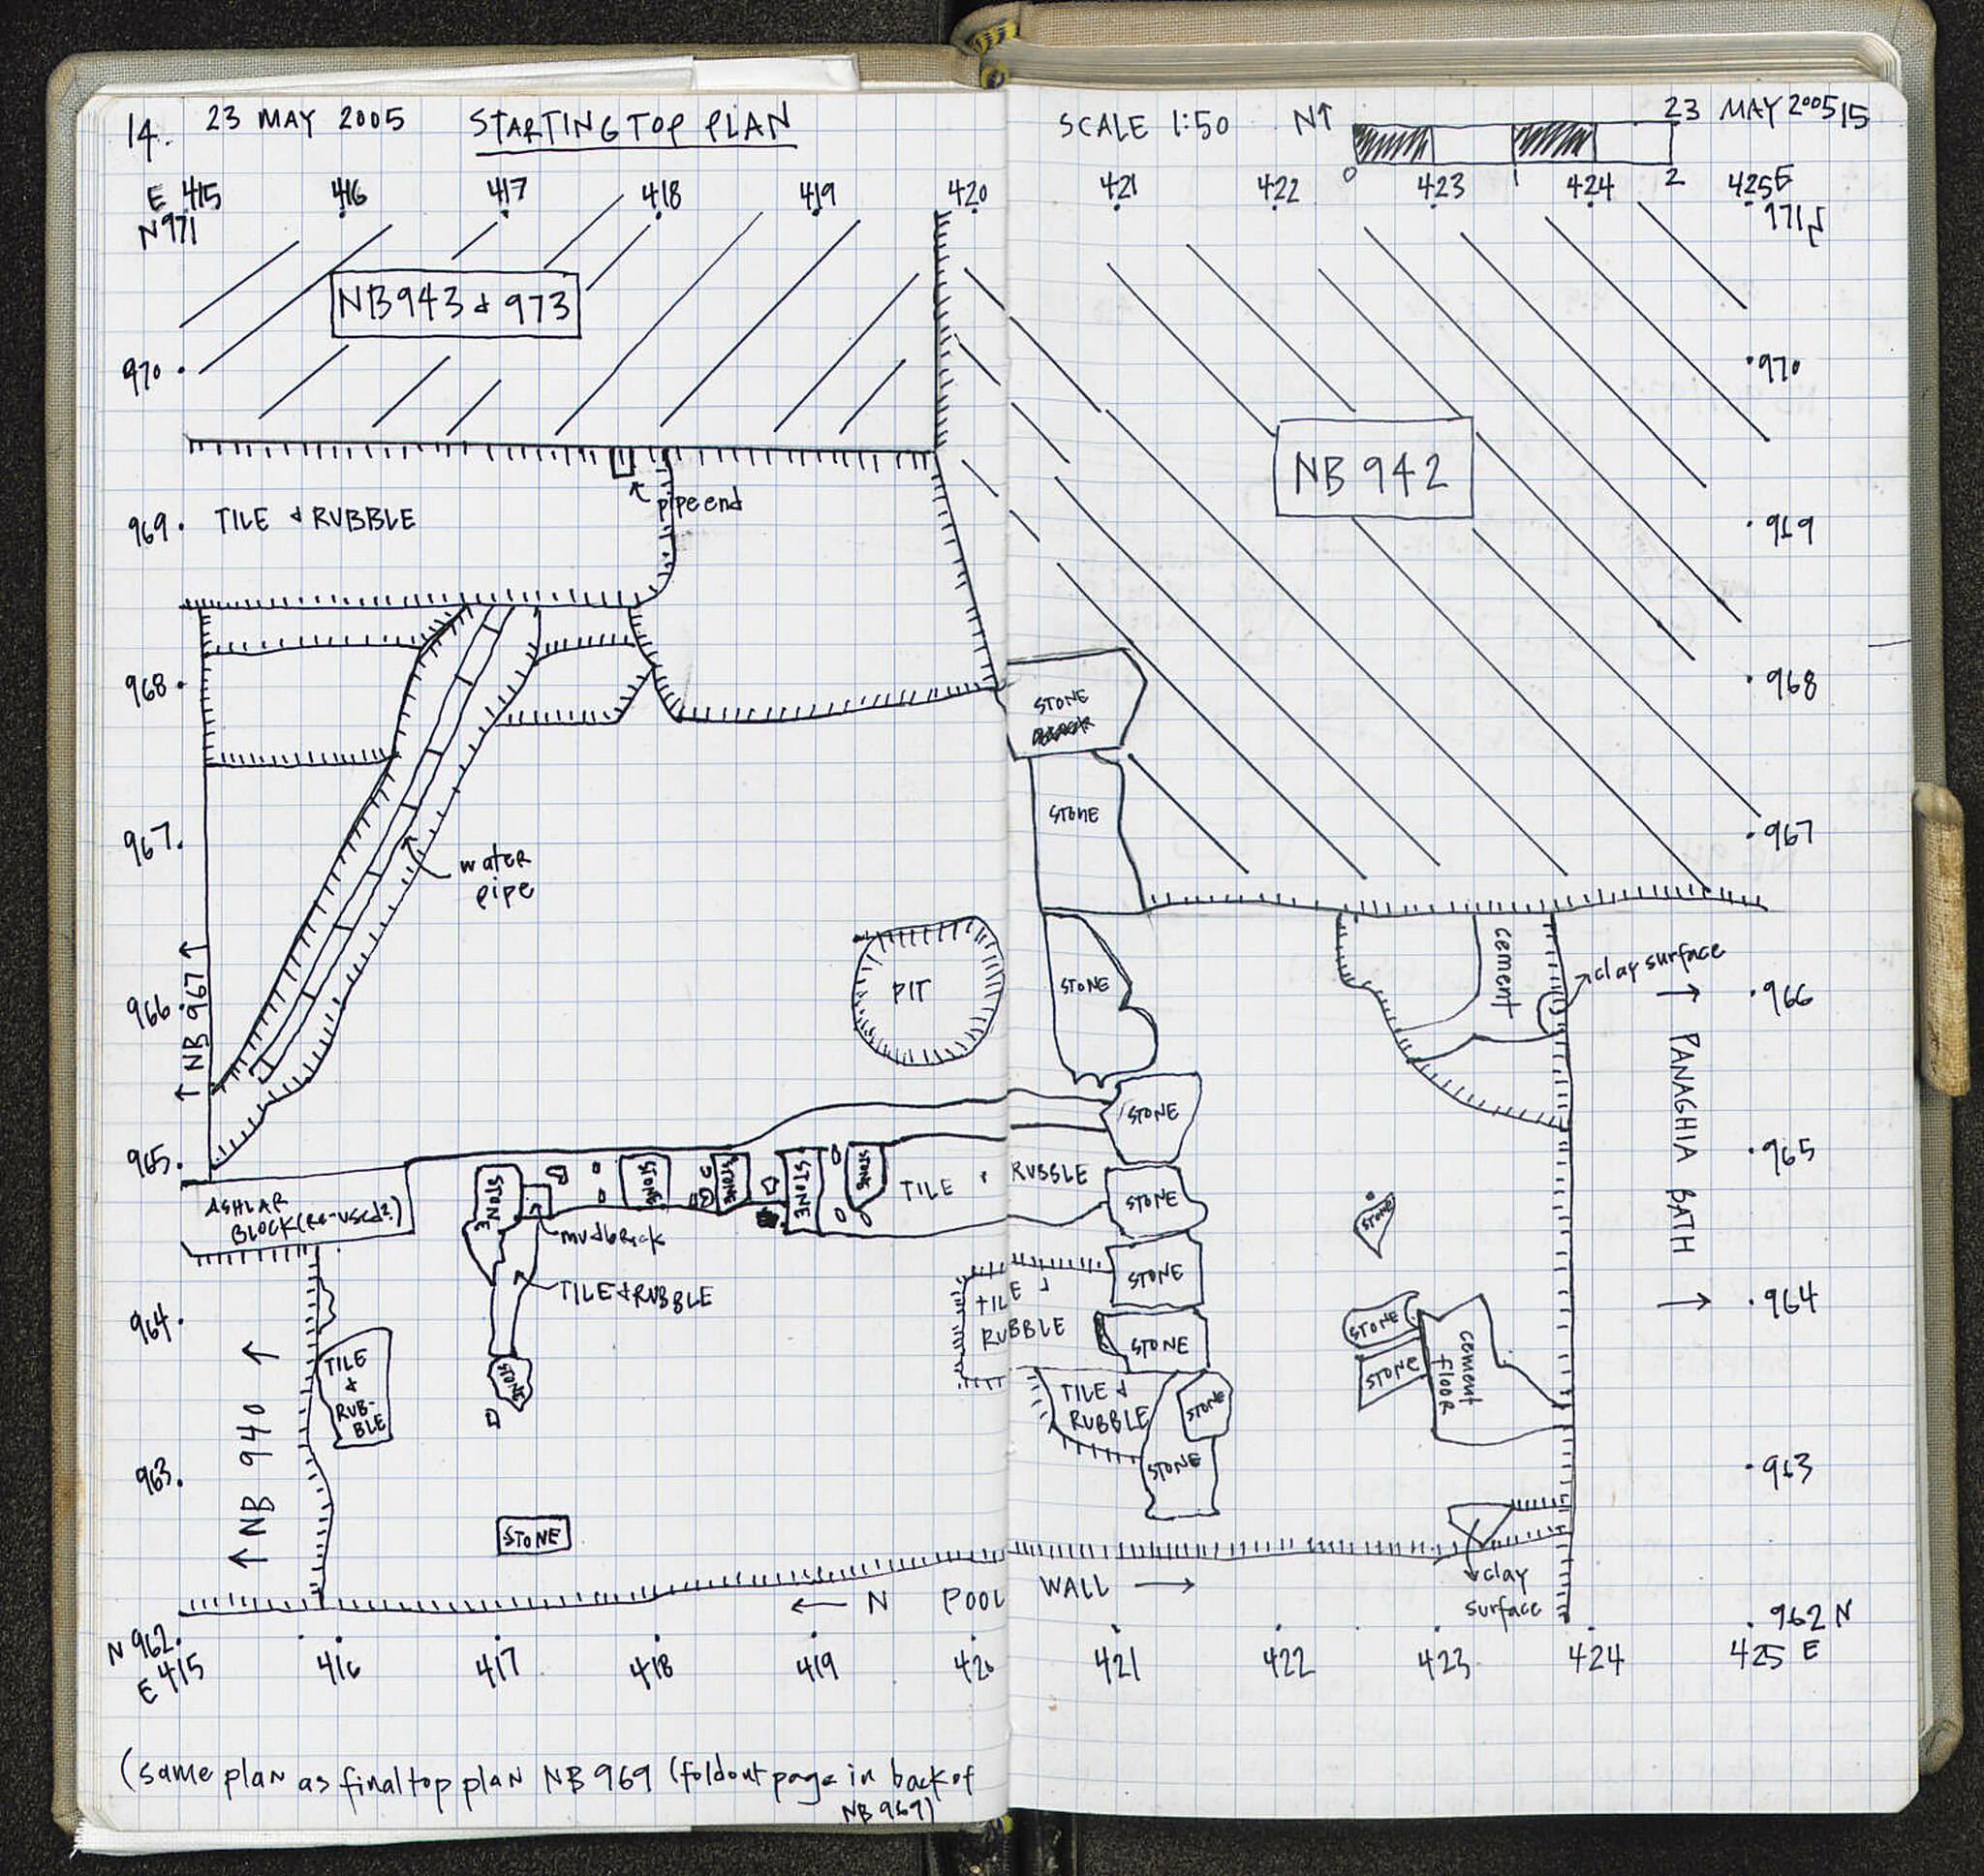 14. 23 MAY 2005 STARTING TOP PLAN
SCALE 1:50 N↑ 23 MAY 2005 15
0 1 2
E 415 416 417 418 419 420 421 422 423 424 425E
N971 971N
NB943 & 973
970 970
NB 942
pipe end
969 TILE & RUBBLE 969
968 968
STONE
STONE
967 967
water
pipe
cement
clay surface
STONE
PIT
966 966
↑ NB 967 ↑
↑ PANAGHIA BATH ↓
STONE
965 965
ASHLAR
BLOCK (RE-USED?)
STONE
STONE
STONE
STONE
STONE
TILE & RUBBLE
STONE
STONE
mudbrick
TILE & RUBBLE
STONE
TILE &
RUBBLE
964 964
STONE
STONE
STONE
cement
floor
TILE
&
RUB-
BLE
STONE
TILE &
RUBBLE
STONE
STONE
963 963
↑ NB 940 ↑
STONE
← N POOL WALL →
clay
surface
N 962 962 N
E 415 416 417 418 419 420 421 422 423 424 425 E
(same plan as final top plan NB 969 (foldout page in back of
NB 969)